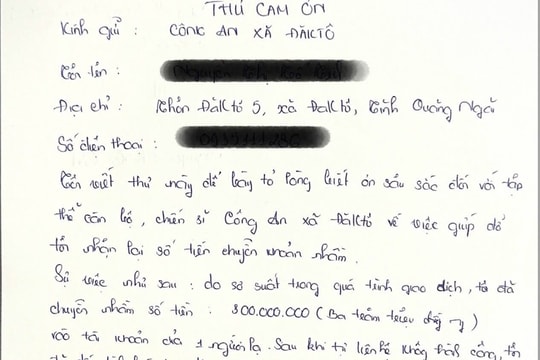 THƯ CẢM ƠN
Kính gửi : CÔNG AN XÃ ĐĂKTÔ
Tôi tên :
Địa chỉ : thôn ĐăkTô 5, xã ĐăkTô, tỉnh Quảng Ngãi
Số điện thoại :
Tôi viết thư này để bày tỏ lòng biết ơn sâu sắc đối với tập
thể cán bộ, chiến sĩ Công An xã ĐăkTô về việc giúp đỡ
tôi nhận lại số tiền chuyển khoản nhầm.
Sự việc như sau : do sơ suất trong quá trình giao dịch, tôi đã
chuyển nhầm số tiền : 300.000.000 ( Ba trăm triệu đồng )
vào tài khoản của 1 người lạ. Sau khi tự liên hệ không thành công, tôn